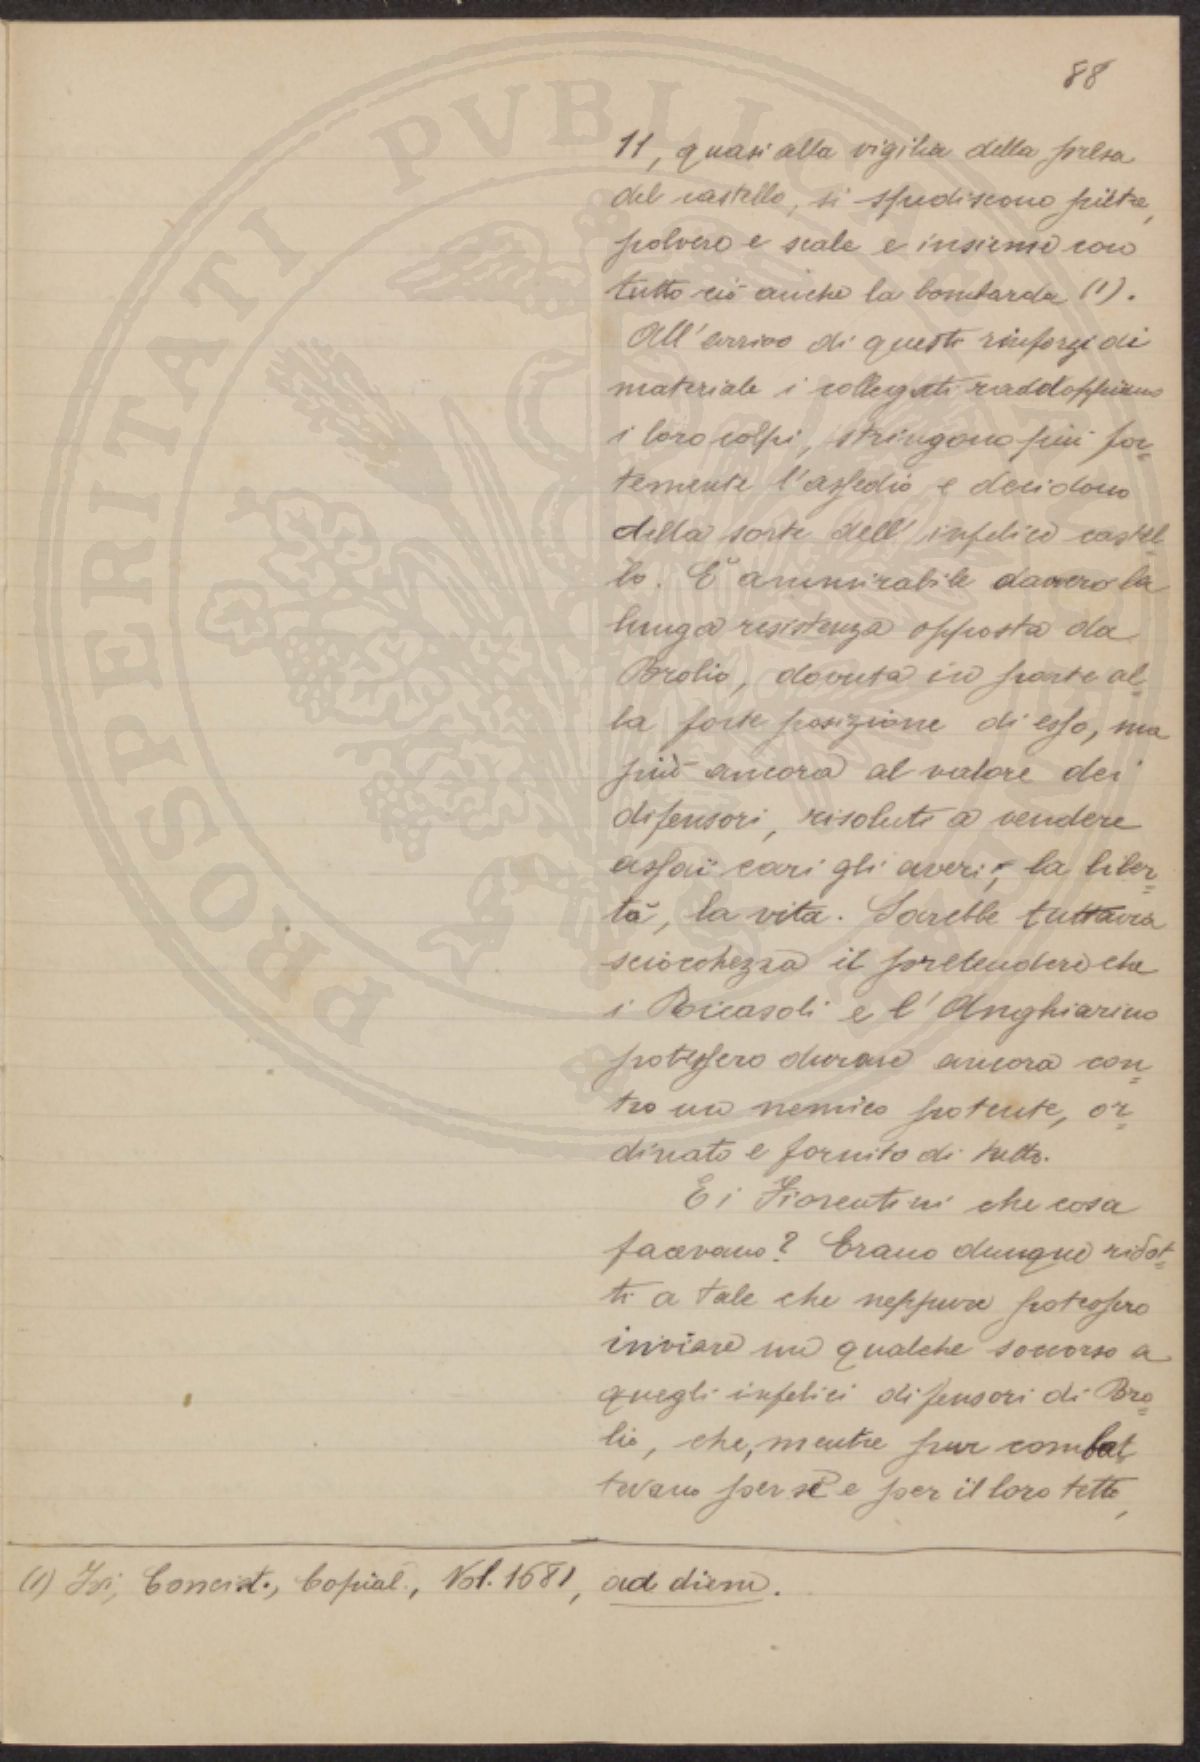 88
11, quasi alla vigilia della presa
del castello, si spediscono pietre,
polvere e scale e insieme con
tutto ciò anche la bombarda (1).
All'arrivo di questi rinforzi di
materiale i collegati raddoppiano
i loro colpi, stringono più for-
temente l'assedio e decidono
della sorte dell'infelice castel-
lo. È ammirabile davvero la
lunga resistenza opposta da
Brolio, dovuta in parte al-
la forte posizione di esso, ma
più ancora al valore dei
difensori, risoluti a vendere
assai cari gli averi, la liber-
tà, la vita. Sarebbe tuttavia
sciocchezza il pretendere che
i Ricasoli e l'Anghiarino
potessero durare ancora con-
tro un nemico potente, or-
dinato e fornito di tutto.
E i Fiorentini che cosa
facevano? Erano dunque ridot-
ti a tale che neppure potessero
inviare un qualche soccorso a
quegli infelici difensori di Bro-
lio, che, mentre pur combat-
tevano per sè e per il loro tetto,
(1) Ivi, Concist., Copial., Vol. 1681, ad diem.
PROSPERITATI PVBLICAE